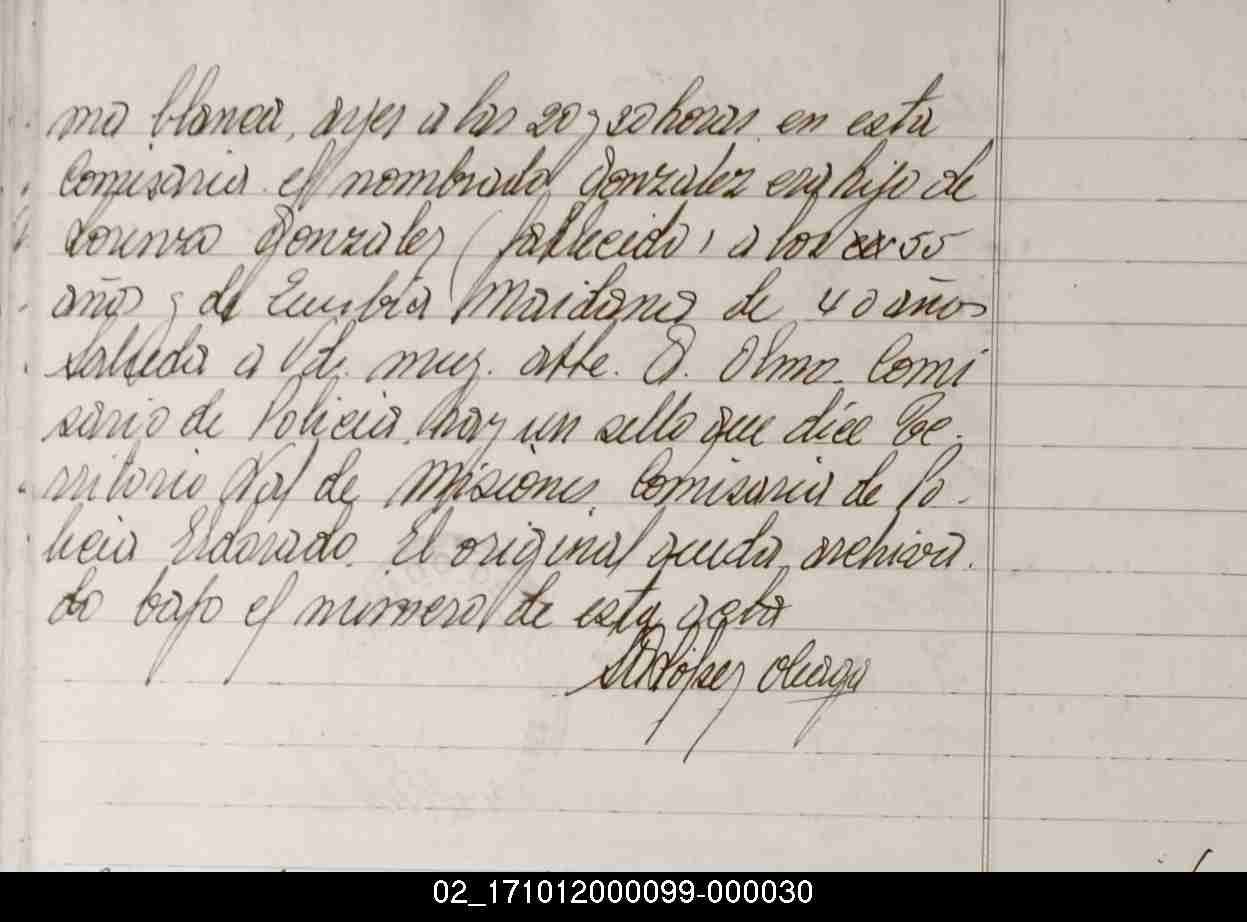 ma blanca, ayer a las 20 y 30 horas en esta
Comisaria. el nombrado Gonzalez era hijo de
Lorenzo Gonzalez (fallecido) a los 55
años y de Eusebia Maidana de 40 años
Saluda a Vd. muy. atte. O. Olmo. Comi
sario de Policia. hay un sello que dice Te-
rritorio Nal de Misiones. Comisaria de Po-
licia Eldorado. El original queda archiva-
do bajo el número de esta acta
López
02_171012000099-000030